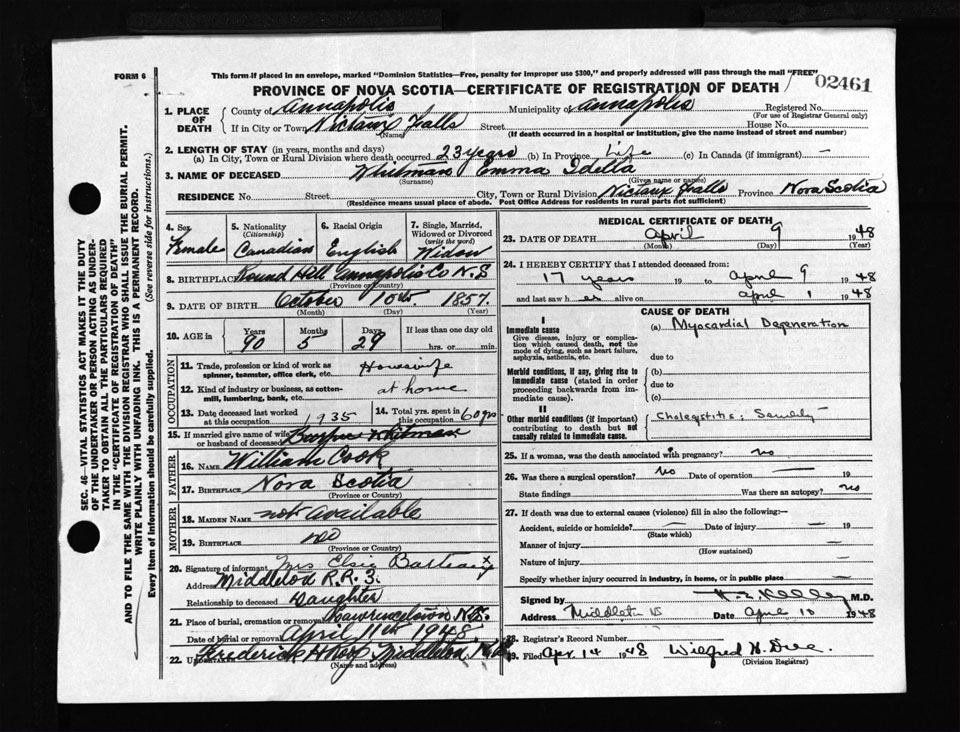 FORM 6
This form if placed in an envelope, marked "Dominion Statistics—Free, penalty for improper use $300," and properly addressed will pass through the mail "FREE"
PROVINCE OF NOVA SCOTIA—CERTIFICATE OF REGISTRATION OF DEATH
02461
1. PLACE OF DEATH
County of Annapolis Municipality of Annapolis Registered No.
(For use of Registrar General only)
If in City or Town Nictaux Falls Street House No.
(Name) (If death occurred in a hospital or institution, give the name instead of street and number)
2. LENGTH OF STAY (in years, months and days)
(a) In City, Town or Rural Division where death occurred 23 years (b) In Province Life (c) In Canada (if immigrant) —
3. NAME OF DECEASED Whitman Emma Idella
(Surname) (Given name or names)
RESIDENCE No. Street City, Town or Rural Division Nictaux Falls Province Nova Scotia
(Residence means usual place of abode. Post Office Address for residents in rural parts not sufficient)
4. Sex Female
5. Nationality (Citizenship) Canadian
6. Racial Origin English
7. Single, Married, Widowed or Divorced (write the word) Widow
8. BIRTHPLACE Round Hill Annapolis Co N.S
(Province or Country)
9. DATE OF BIRTH October 10th 1857
(Month) (Day) (Year)
10. AGE in Years 90 Months 5 Days 29 If less than one day old hrs. or min.
OCCUPATION
11. Trade, profession or kind of work as spinner, teamster, office clerk, etc. Housewife
12. Kind of industry or business, as cotton-mill, lumbering, bank, etc. at home
13. Date deceased last worked at this occupation 1935
14. Total yrs. spent in this occupation 60 yrs
15. If married give name of wife or husband of deceased Whitman
FATHER
16. NAME William Cook
17. BIRTHPLACE Nova Scotia
(Province or Country)
MOTHER
18. MAIDEN NAME not available
19. BIRTHPLACE do
(Province or Country)
20. Signature of informant Mrs Elsie
Address R.R.3.
Relationship to deceased Daughter
21. Place of burial, cremation or removal Lawrencetown N.S.
Date of burial or removal April 11th 1948
22. UNDERTAKER Frederick
(Name and address)
MEDICAL CERTIFICATE OF DEATH
23. DATE OF DEATH April 9 1948
(Month) (Day) (Year)
24. I HEREBY CERTIFY that I attended deceased from:
17 years 19 to April 9 1948
and last saw her alive on April 1 1948
CAUSE OF DEATH
I
Immediate cause
Give disease, injury or complication which caused death, not the mode of dying, such as heart failure, asphyxia, asthenia, etc.
(a) Myocardial Degeneration
due to
Morbid conditions, if any, giving rise to immediate cause (stated in order proceeding backwards from immediate cause).
(b)
due to
(c)
II
Other morbid conditions (if important) contributing to death but not causally related to immediate cause.
25. If a woman, was the death associated with pregnancy? no
26. Was there a surgical operation? no Date of operation — 19
State findings Was there an autopsy? no
27. If death was due to external causes (violence) fill in also the following:—
Accident, suicide or homicide? — Date of injury — 19
(State which)
Manner of injury —
(How sustained)
Nature of injury —
Specify whether injury occurred in industry, in home, or in public place —
Signed by M.D.
Address Date April 1948
28. Registrar's Record Number
29. Filed Apr 14 1948 Wilfred H.
(Division Registrar)
SEC. 46—VITAL STATISTICS ACT MAKES IT THE DUTY
OF THE UNDERTAKER OR PERSON ACTING AS UNDER-
TAKER TO OBTAIN ALL THE PARTICULARS REQUIRED
IN THE "CERTIFICATE OF REGISTRATION OF DEATH"
AND TO FILE THE SAME WITH THE DIVISION REGISTRAR WHO SHALL ISSUE THE BURIAL PERMIT.
WRITE PLAINLY WITH UNFADING INK. THIS IS A PERMANENT RECORD.
Every item of Information should be carefully supplied. (See reverse side for instructions.)